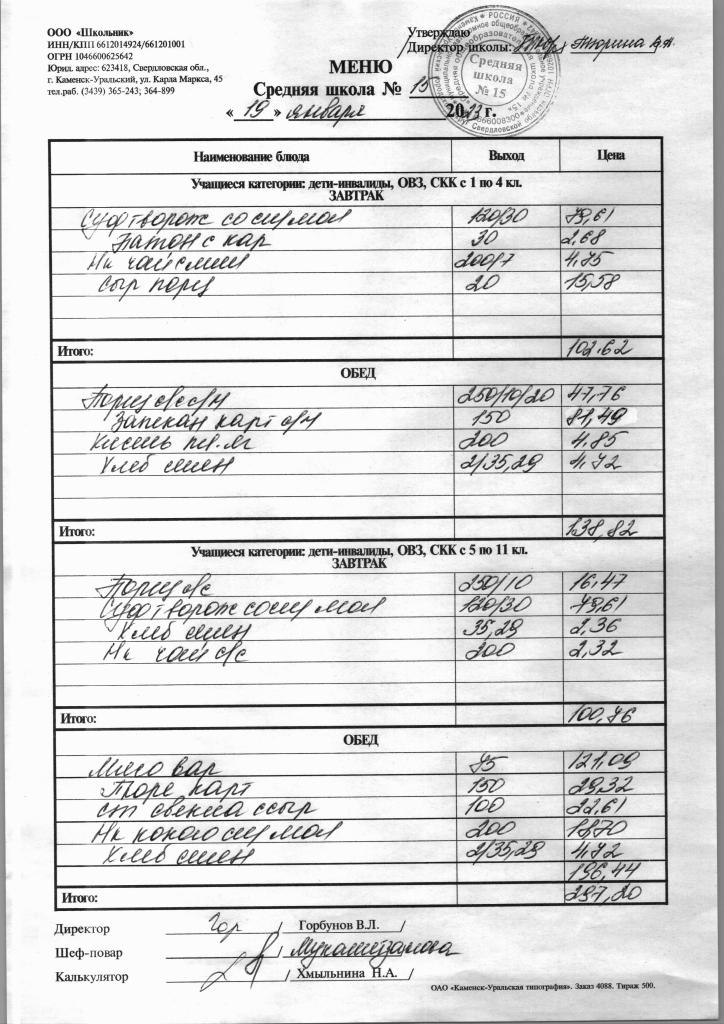 ООО «Школьник»
ИНН/КПП 6612014924/661201001
ОГРН 1046600625642
Юрид. адрес: 623418, Свердловская обл.,
г. Каменск-Уральский, ул. Карла Маркса, 45
тел.раб. (3439) 365-243; 364-899
Утверждаю
Директор школы: Тюрина
Средняя школа № 15
МЕНЮ
Средняя школа № 15
« 19 » января 2023 г.
Наименование блюда Выход Цена
Учащиеся категории: дети-инвалиды, ОВЗ, СКК с 1 по 4 кл.
ЗАВТРАК
Суф творож со сг мол 120/30 79,61
Батон с кар 30 2,68
Нк чай слим 200/7 4,75
Сыр порц 20 15,58
Итого: 102.62
ОБЕД
Борщ с/с с/м 250/10/20 47,76
Запекан карт с/м 150 81,49
Кисель пл.яг 200 4.85
Хлеб 2/35,29 4,72
Итого: 138,82
Учащиеся категории: дети-инвалиды, ОВЗ, СКК с 5 по 11 кл.
ЗАВТРАК
Борщ с/с 250/10 16,47
Суф творож со сг мол 120/30 79,61
Хлеб 35,29 2,36
Нк чай с/с 200 2,32
Итого: 100,76
ОБЕД
Мясо вар 75 121,09
Пюре карт 150 29,32
свекла с сыр 100 22,61
Нк какао сг мол 200 18,70
Хлеб 2/35,29 4,72
196,44
Итого: 297,20
Директор Гор / Горбунов В.Л. /
Шеф-повар /
Калькулятор / Хмыльнина Н.А. /
ОАО «Каменск-Уральская типография». Заказ 4088. Тираж 500.